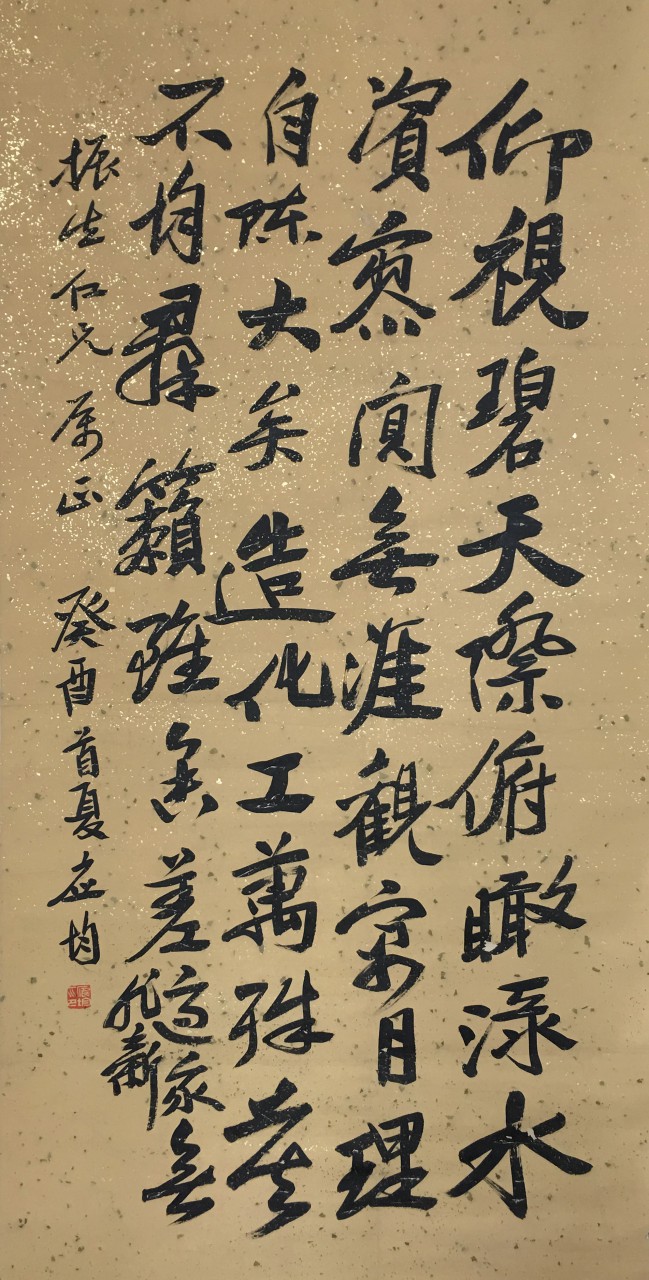 仰視碧天際俯瞰淥水
濱寥闃無涯觀寓目理
自陳大矣造化工萬殊莫
不均羣籟雖參差適我無
非新
振生仁兄属正 癸酉首夏應均